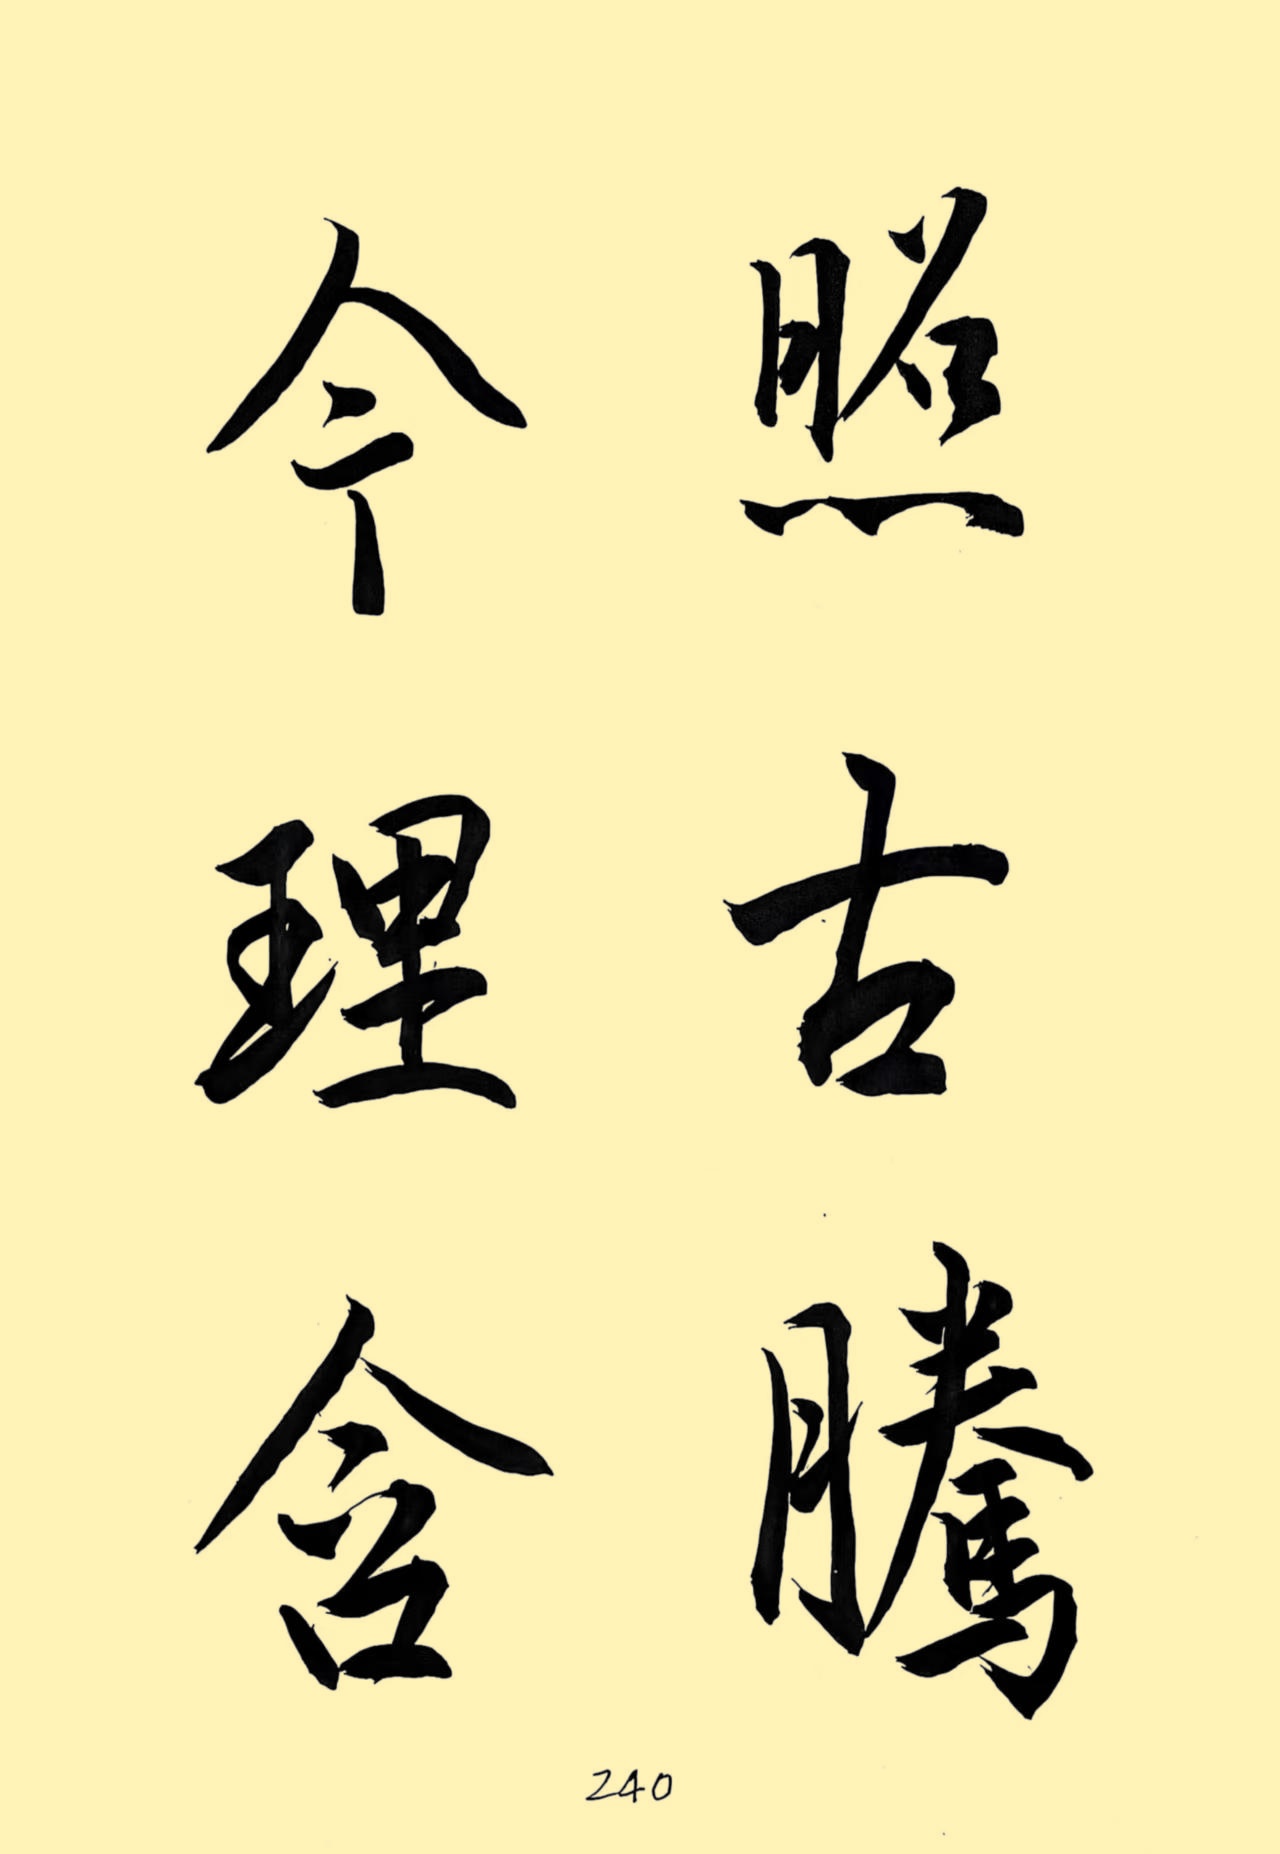 照古騰
今理含
240